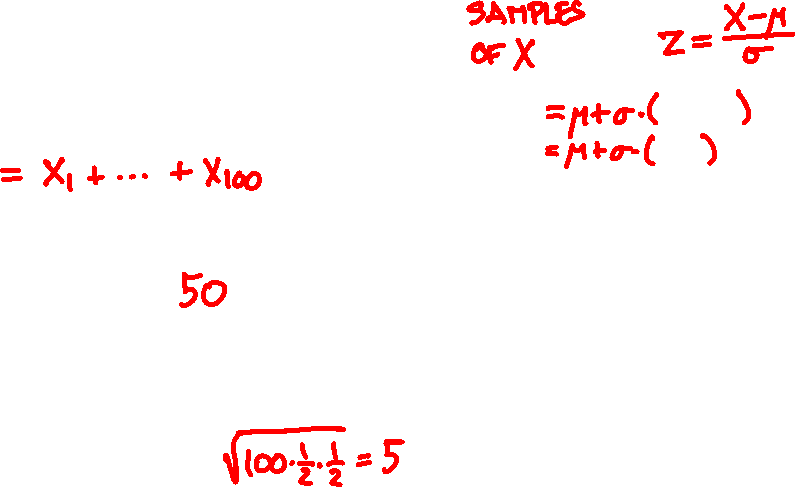 SAMPLES
OF X
Z = (X-μ)/σ
= μ+σ·( )
= μ+σ·( )
= X₁ + ··· + X₁₀₀
50
√(100·½·½) = 5